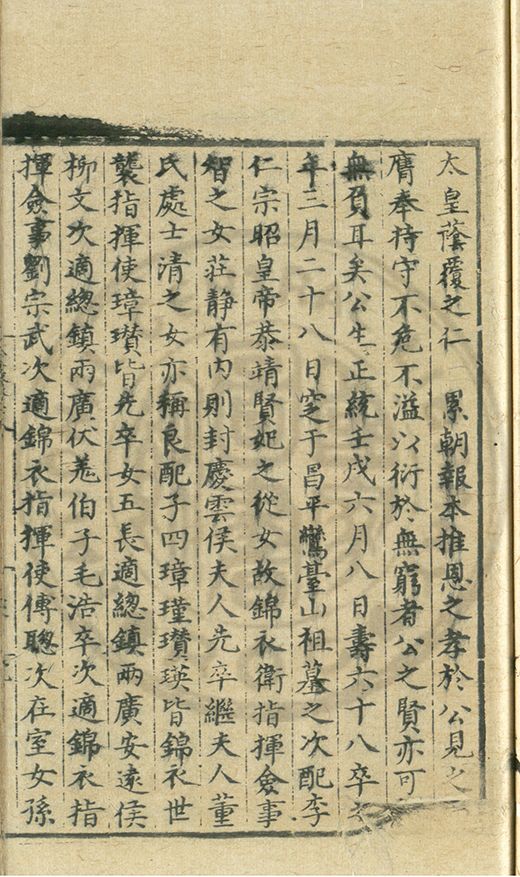 太皇蔭覆之仁 累朝報本推恩之孝於公見之
膺奉持守不危不溢以衍於無窮者公之賢亦可
無負耳矣公生正統壬戌六月八日壽六十八卒
年三月二十八日窆于昌平鸞臺山祖墓之次配李
仁宗昭皇帝恭靖賢妃之從女故錦衣衛指揮僉事
智之女莊静有内則封慶雲侯夫人先卒繼夫人董
氏處士清之女亦稱良配子四璋瑾瓚瑛皆錦衣世
襲指揮使璋瓚皆先卒女五長適總鎮兩廣安遠侯
柳文次適總鎮兩廣伏羌伯子毛浩卒次適錦衣指
揮僉事劉宗武次適錦衣指揮使傅聰次在室女孫